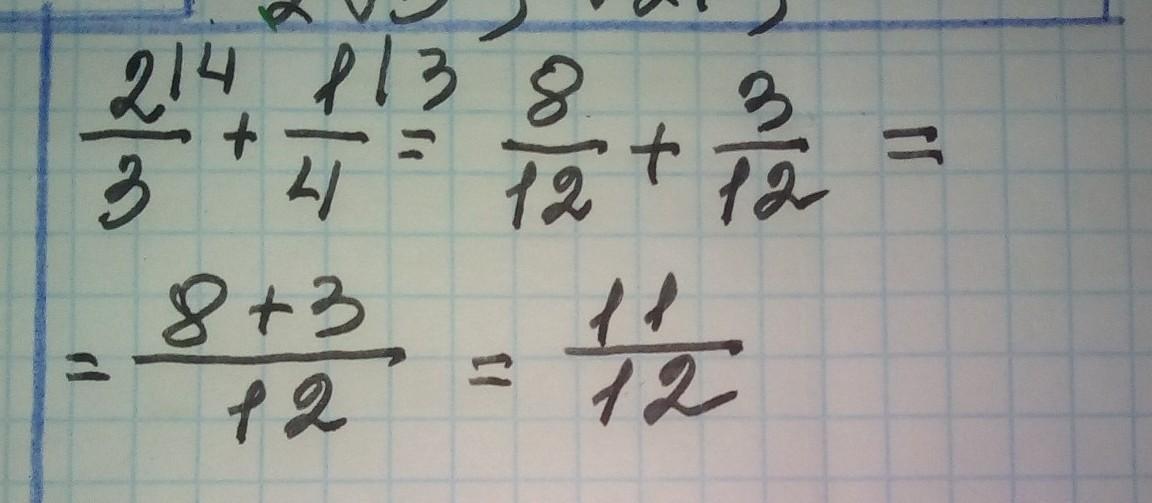 2|4/3 + 1|3/4 = 8/12 + 3/12 =
= 8+3/12 = 11/12